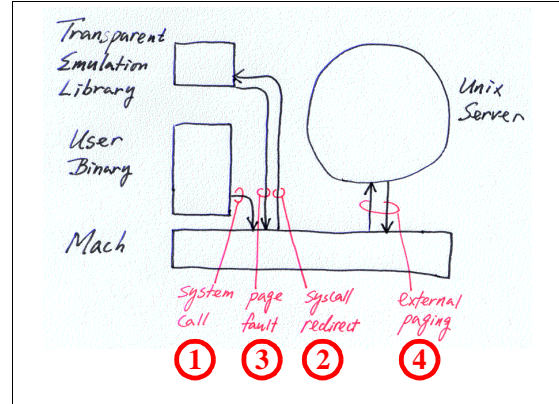 Transparent
Emulation
Library
Unix
Server
User
Binary
Mach
system
call
page
fault
syscall
redirect
external
paging
1
3
2
4